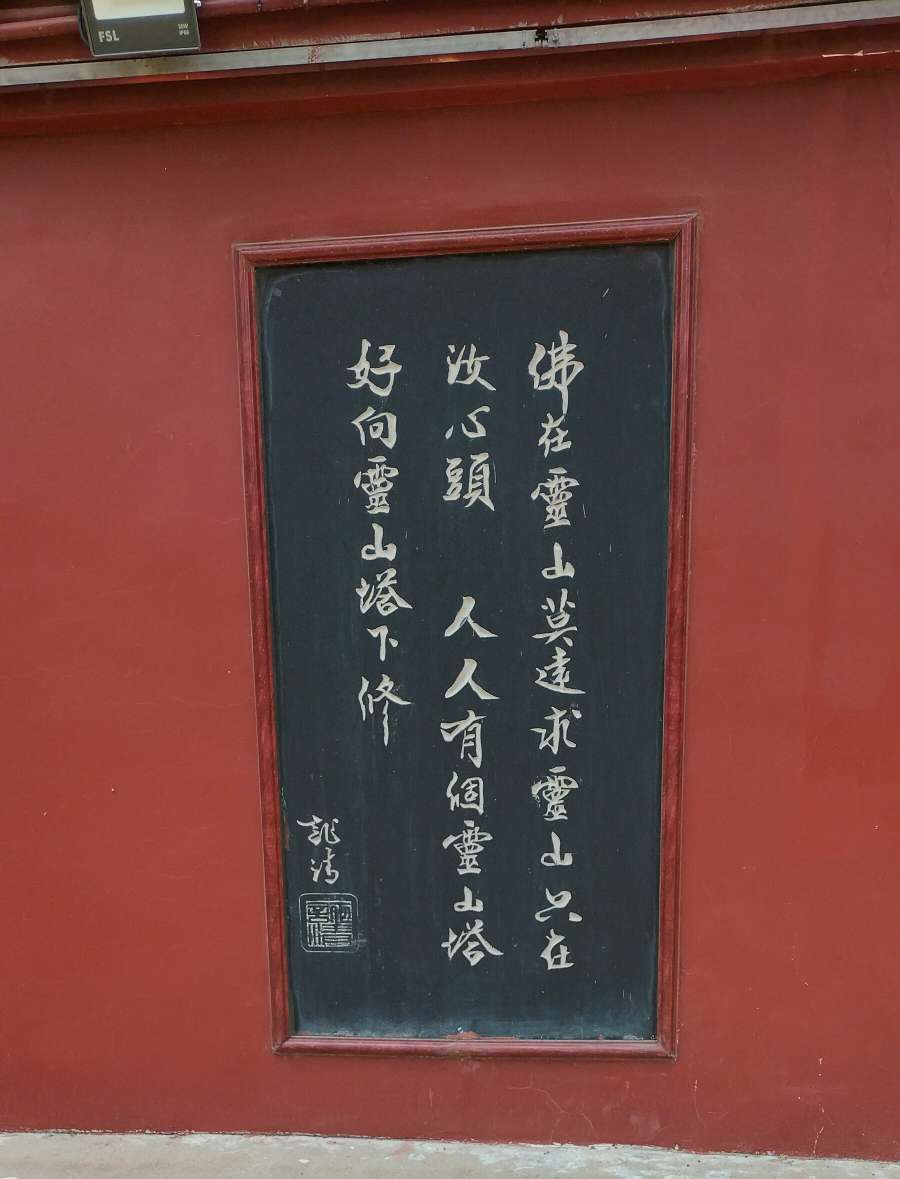 佛在靈山莫遠求靈山只在
汝心頭 人人有個靈山塔
好向靈山塔下修
龍清
FSL
50W
IP66